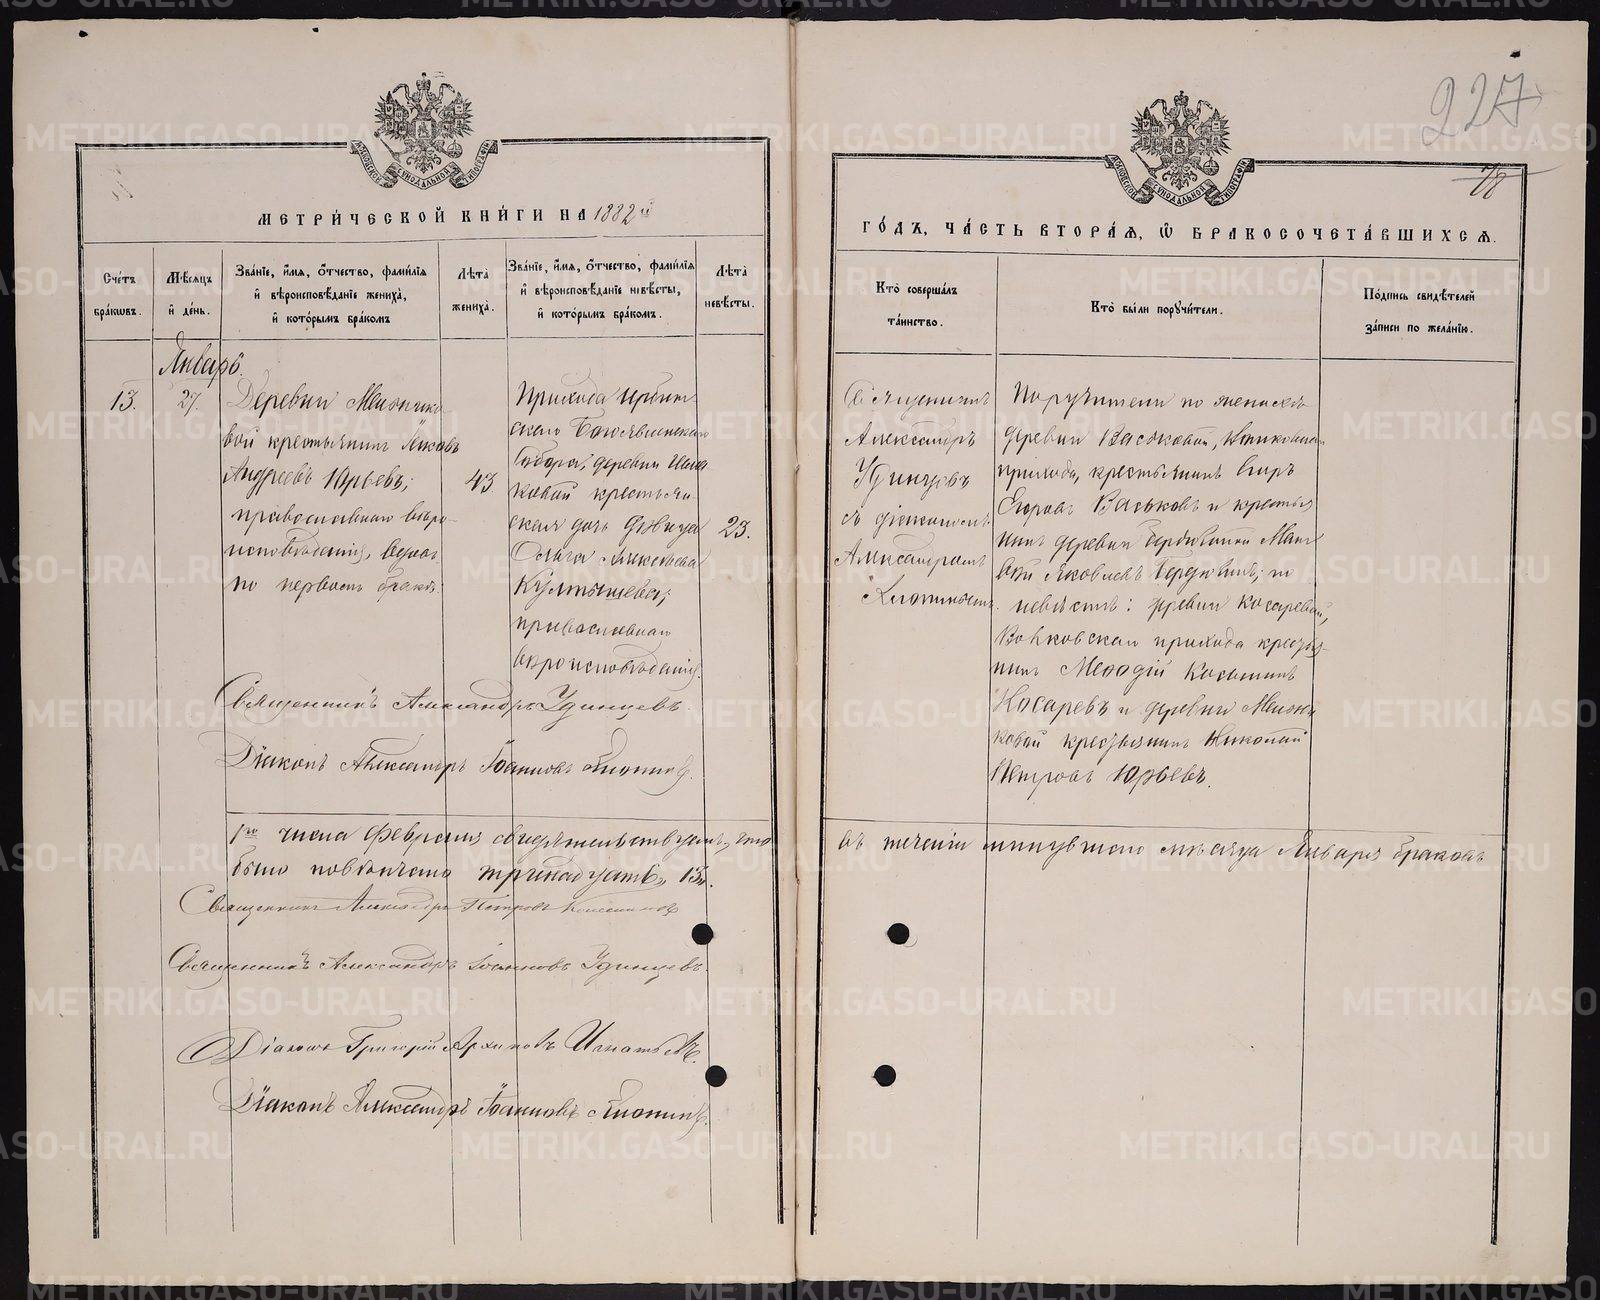 227
78
МЕТРИ́ЧЕСКОЙ КНИ́ГИ НА 1882й
ГО́ДЪ, ЧА́СТЬ ВТОРА́Я, Ѡ БРАКОСОЧЕТА́ВШИХСЯ.
Сче́тъ
бра́кѡвъ.
Мѣ́сяцъ
и҆ де́нь.
Зва́нїе, и҆́мя, ѻ҆́тчество, фами́лїя
и҆ вѣроисповѣ́данїе жениха̀,
и҆ кото́рымъ бра́комъ
Лѣ́та
жениха̀.
Зва́нїе, и҆́мя, ѻ҆́тчество, фами́лїя
и҆ вѣроисповѣ́данїе невѣ́сты,
и҆ кото́рымъ бра́комъ.
Лѣ́та
невѣ́сты.
Кто̀ соверша́лъ
та́инство.
Кто̀ бы́ли поручи́тели.
По́дпись свидѣ́телей
за́писи по жела́нїю.
Январь.
13.
27.
Деревни
вой крестьянинъ Яковъ
Андреевъ Юрьевъ;
православнаго вѣро-
исповѣданія,
по первымъ бракѣ.
43.
Прихода Ирбит-
скаго Богоявленскаго
Собора, деревни
ковой крестьян-
ская дочь дѣвица
Ольга Алексѣева
Култышева;
православнаго
вѣроисповѣданія.
23.
Священникъ
Александръ
Удинцевъ
съ діакономъ
Александромъ
Поручители по женихѣ
деревни Васьковой,
прихода, крестьянинъ
Егоровъ Васьковъ и крестья-
нинъ деревни
Яковлевъ по
невѣстѣ: деревни Косаревой,
прихода крестья-
нинъ Меѳодій
Косаревъ и деревни
ковой крестьянинъ Николай
Петровъ Юрьевъ.
Священникъ Александръ Удинцевъ.
Діаконъ Александръ Іоанновъ
1го числа Февраля свидѣтельствуемъ, что
въ теченіи минувшаго мѣсяца Января браковъ
было повѣнчано тринадцать, 13.
Священникъ Александръ Петровъ
Священникъ Александръ Іоанновъ Удинцевъ.
Діаконъ Григорій
Діаконъ Александръ Іоанновъ
METRIKI.GASO-URAL.RU